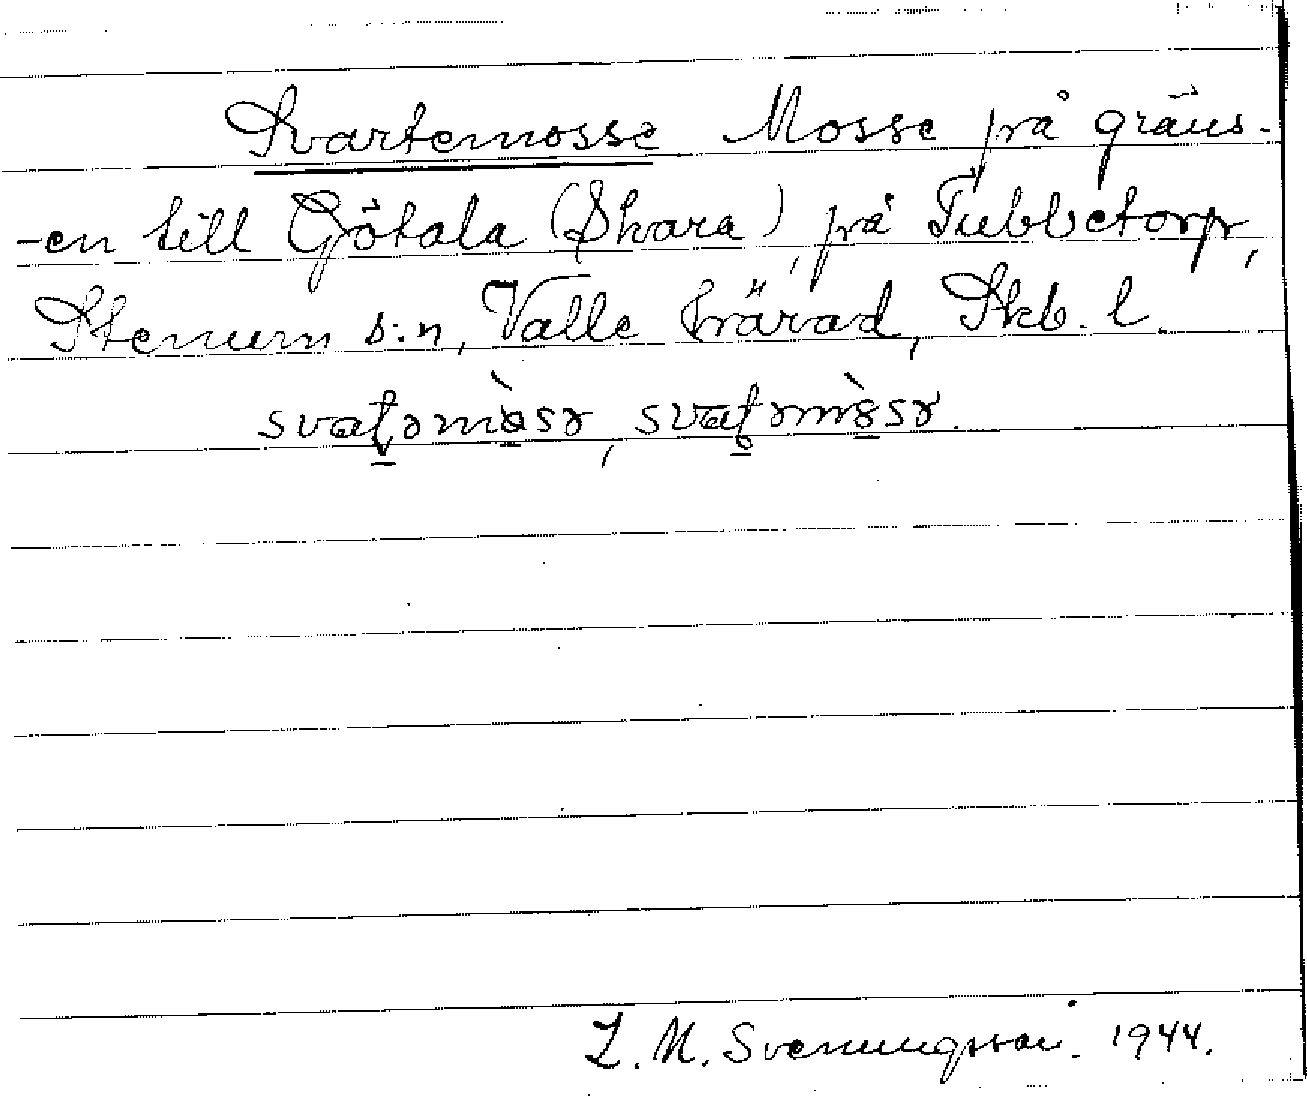 Svartemosse Mosse på gräns-
-en till Götala (Skara), på Tubbetorp,
Stenum s:n, Valle härad, Skb. l.
svaʈəmòsə, svaʈəmòsə.
Z. M. Svenungsson. 1944.